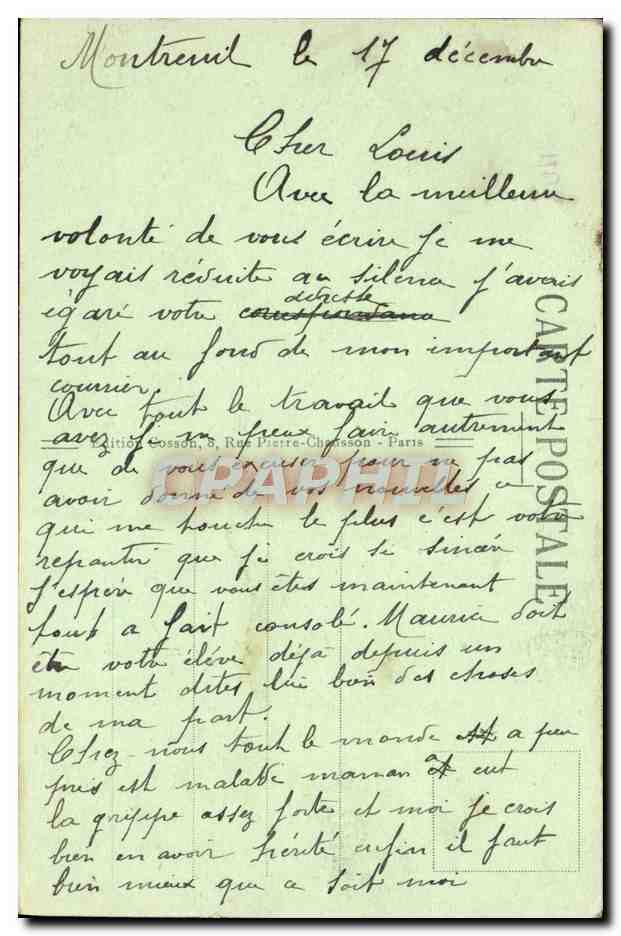 Montreuil le 17 décembre
Cher Louis
Avec la meilleure
volonté de vous écrire je me
voyais réduite au silence j'avais
égaré votre ~~correspondance~~ adresse
tout au fond de mon important
courrier.
Avec tout le travail que vous
avez je ne peux faire autrement
que de vous excuser pour ne pas
avoir donné de vos nouvelles ce
qui me touche le plus c'est votre
repentir que je crois si sincère
J'espère que vous êtes maintenant
tout a fait consolé. Maurice doit
être votre élève déjà depuis un
moment dites lui bien des choses
de ma part.
Chez-nous tout le monde a peu
près est malade maman a eut
la grippe assez forte et moi je crois
bien en avoir hérité enfin il faut
bien mieux que ce soit moi
CARTE POSTALE
Edition Cosson, 8, Rue Pierre-Chausson - Paris
CPAPHIL